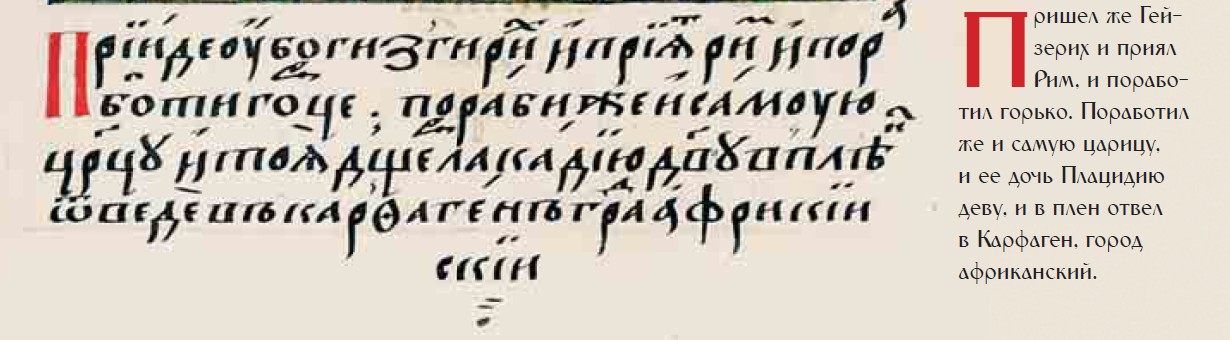 Прїиде оубо гизгирй и прїѧ ри и пор
боти гоце, пораби же и самоую
црцꙋ и тоѧ дще лакадїю дв꙯ꙋ в плѣ
ѿведе въ карѳагенъ гра афрікїи
скїи
Пришел же Гей-
зерих и приял
Рим, и порабо-
тил горько. Поработил
же и самую царицу,
и ее дочь Плацидию
деву, и в плен отвел
в Карфаген, город
африканский.